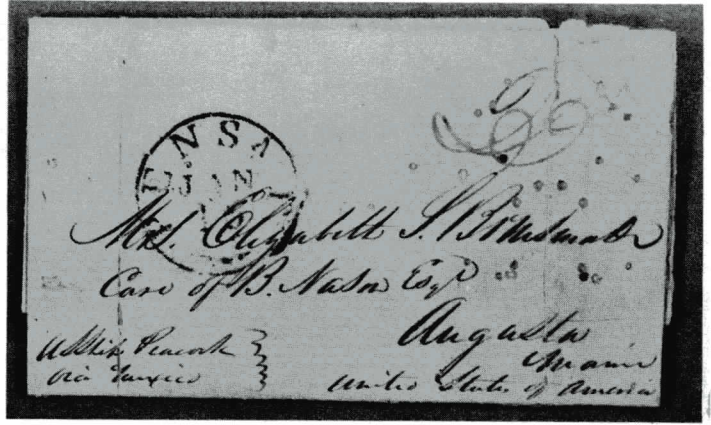 ENSA
JAN
Mrs. Elizabeth S.
Care of B. Nason Esqr
Augusta
Maine
United States of America
U.S. Ship Peacock
via Mexico